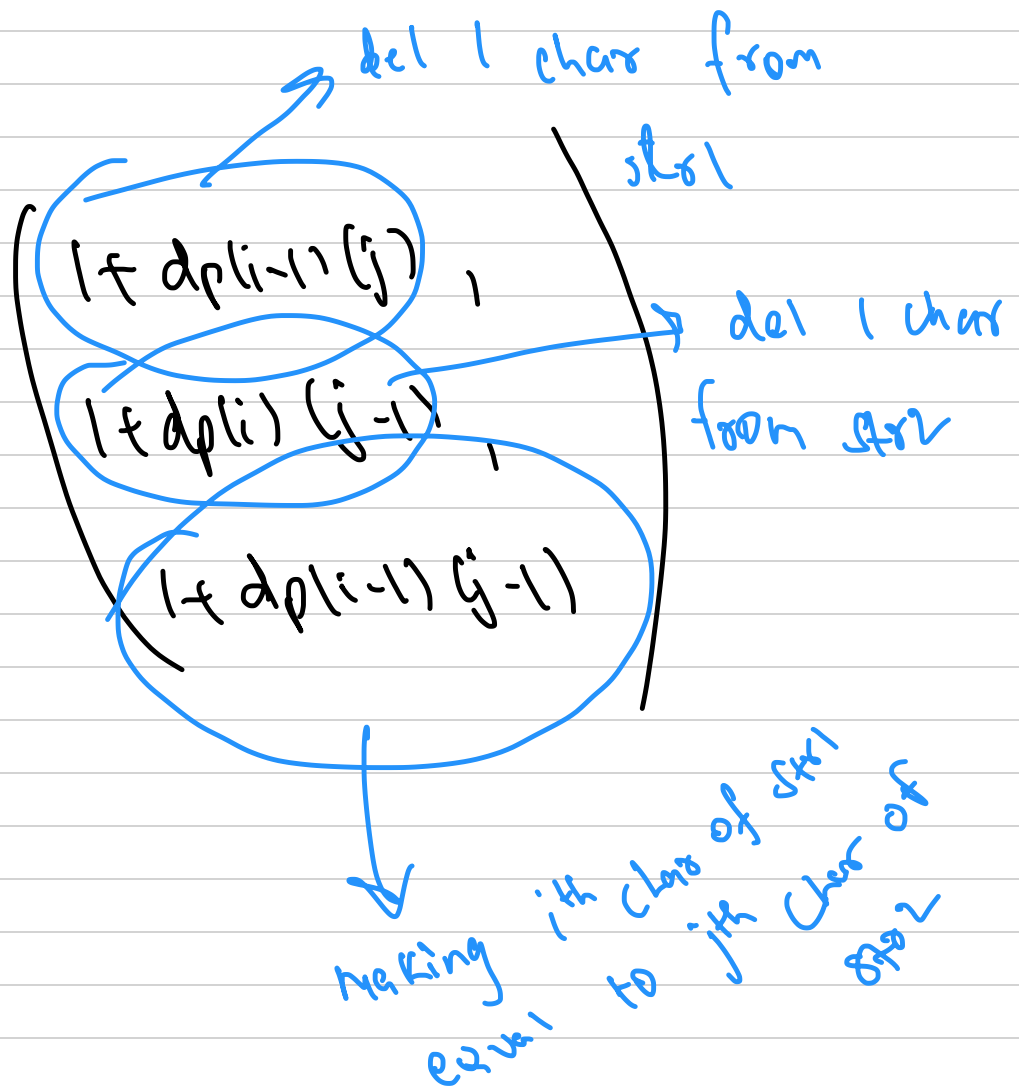 del 1 char from
str1
1+ dp(i-1)(j),
del 1 char
from str2
1+dp(i)(j-1),
1+ dp(i-1)(j-1)
making ith char of str1
equal to jth char of
str2